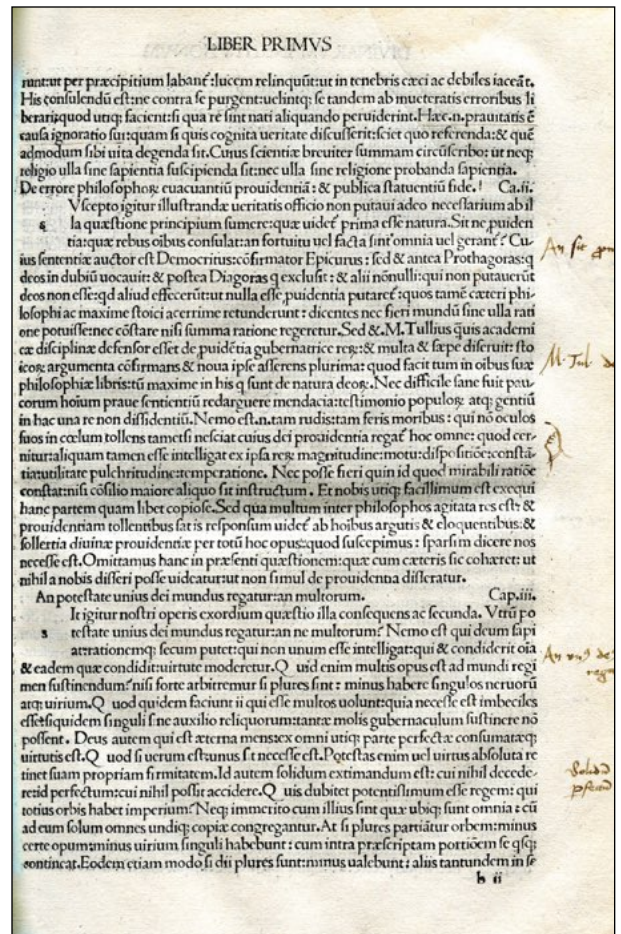 LIBER PRIMVS
runt:ut per præcipitium labant᷑:lucem relinquũt:ut in tenebris cæci ac debiles iaceãt.
His consulendũ est:ne contra se purgent:uelintq; se tandem ab inueteratis erroribus li
berari:quod utiq; facient:si qua re sint nati aliquando peruiderint.Hæc.n.prauitatis ẽ
causa ignoratio sui:quam si quis cognita ueritate discusserit:sciet quo referenda:& quẽ
admodum sibi uita degenda sit.Cuius scientiæ breuiter summam circũscribo: ut neq;
religio ulla sine sapientia suscipienda sit:nec ulla sine religione probanda sapientia.
De errore philosophoꝝ euacuantiũ prouidentiã: & publica statuentiũ fide. Ca.ii.
Vscepto igitur illustrandæ ueritatis officio non putaui adeo necessarium ab il
s la quæstione principium sumere:quæ uidet᷑ prima esse natura.Sit ne ꝓuiden
tia:quæ rebus oĩbus consulat:an fortuitu uel facta sint omnia uel gerant᷑? Cu
ius sententiæ auctor est Democritus:cõfirmator Epicurus : sed & antea Prothagoras:q
deos in dubiũ uocauit: & postea Diagoras q exclusit : & alii nõnulli:qui non putauerũt
deos non esse:qd aliud effecerũt:ut nulla esse ꝓuidentia putaret᷑:quos tamẽ cæteri phi-
losophi ac maxime stoici acerrime retunderunt : dicentes nec fieri mundũ sine ulla rati
one potuisse:nec cõstare nisi summa ratione regeretur.Sed &.M.Tullius quis academi
cæ disciplinæ defensor esset de ꝓuidẽtia gubernatrice reꝝ:& multa & sæpe diseruit: sto
icoꝝ argumenta cõfirmans & noua ipse asserens plurima: quod facit tum in oĩbus suæ
philosophiæ libris:tũ maxime in his q sunt de natura deoꝝ.Nec difficile sane fuit pau
corum hoĩum praue sentientiũ redarguere mendacia:testimonio populoꝝ atq; gentiũ
in hac una re non dissidentiũ.Nemo est.n.tam rudis:tam feris moribus : qui nõ oculos
suos in cœlum tollens tametsi nesciat cuius dei prouidentia regat᷑ hoc omne: quod cer-
nitur:aliquam tamen esse intelligat ex ipsa reꝝ magnitudine:motu:dispositiõe:constã-
tia:utilitate pulchritudine:temperatione. Nec posse fieri quin id quod mirabili ratiõe
constat:nisi cõsilio maiore aliquo sit instructum. Et nobis utiq; facillimum est exequi
hanc partem quam libet copiose.Sed qua multum inter philosophos agitata res est: &
prouidentiam tollentibus satis responsum uidet᷑ ab hoĩbus argutis & eloquentibus:&
sollertia diuinæ prouidentiæ per totũ hoc opus:quod suscepimus : sparsim dicere nos
necesse est.Omittamus hanc in præsenti quæstionem:quæ cum cæteris sic cohæret: ut
nihil a nobis disseri posse uideatur:ut non simul de prouidentia disseratur.
An potestate unius dei mundus regatur:an multorum. Cap.iii.
It igitur nostri operis exordium quæstio illa consequens ac secunda. Vtrũ po
s testate unius dei mundus regatur:an ne multorum? Nemo est qui deum sapi
at:rationemq; secum putet:qui non unum esse intelligat:qui & condiderit oĩa
& eadem quæ condidit:uirtute moderetur.Q uid enim multis opus est ad mundi regi
men sustinendum? nisi forte arbitremur si plures sint : minus habere singulos neruorũ
atq; uirium.Q uod quidem faciunt ii qui esse multos uolunt:quia necesse est imbeciles
esse:siquidem singuli sine auxilio reliquorum:tantæ molis gubernaculum sustinere nõ
possent. Deus autem qui est æterna mens:ex omni utiq; parte perfectæ consumatæq;
uirtutis est.Q uod si uerum est:unus sit necesse est.Potestas enim uel uirtus absoluta re
tinet suam propriam firmitatem.Id autem solidum extimandum est: cui nihil decede-
re:id perfectum:cui nihil possit accidere.Q uis dubitet potentissimum esse regem: qui
totius orbis habet imperium? Neq; immerito cum illius sint quæ ubiq; sunt omnia : cũ
ad eum solum omnes undiq; copiæ congregantur.At si plures partiãtur orbem:minus
certe opum:minus uirium singuli habebunt : cum intra præscriptam portiõem se qsq;
contineat.Eodem etiam modo si dii plures sunt:minus ualebunt: aliis tantundem in se
b ii
An sit
M. Tul.
An vn9 de
Solid